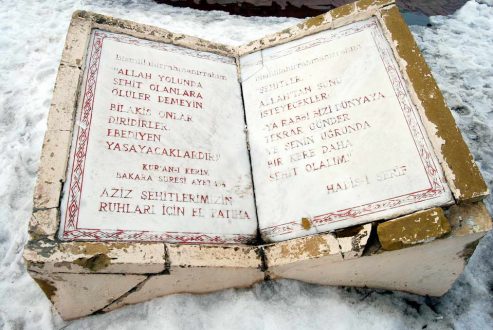 Bismillahirrahmanirrahim
"ALLAH YOLUNDA
ŞEHİT OLANLARA
ÖLÜLER DEMEYİN
BİLAKİS ONLAR
DİRİDİRLER,
EBEDİYEN
YAŞAYACAKLARDIR"
KUR'AN-I KERİM
BAKARA SURESİ AYET
AZİZ ŞEHİTLERİMİZİN
RUHLARI İÇİN EL FATİHA
Bismillahirrahmanirrahim
"ŞEHİTLER,
ALLAH'TAN ŞUNU
İSTEYECEKLER:
YA RABBİ BİZİ DÜNYAYA
TEKRAR GÖNDER
VE SENİN UĞRUNDA
BİR KERE DAHA
ŞEHİT OLALIM"
HADİS-İ ŞERİF